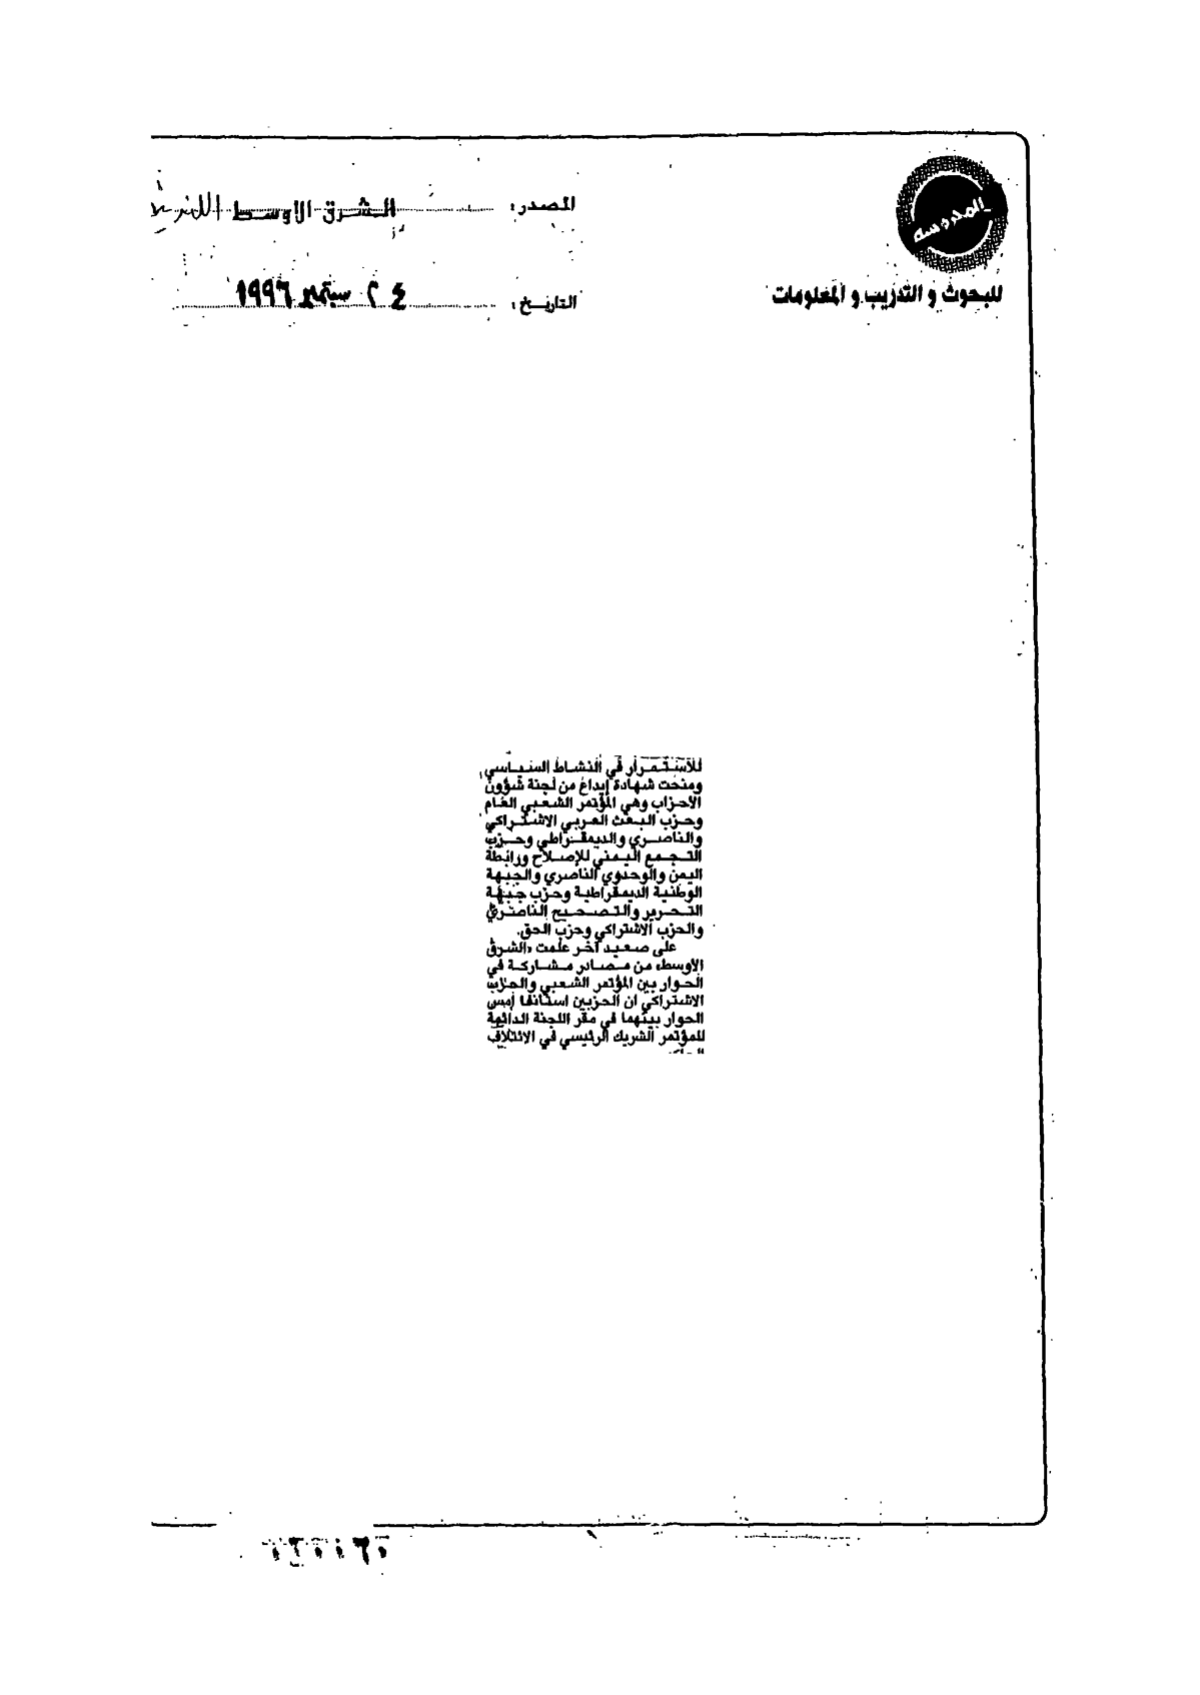 المحروسة
للبحوث و التدريب و المعلومات
المصدر: الشرق الاوسط
التاريخ: ٢٤ سبتمبر ١٩٩٦
للاستمرار في النشاط السياسي
ومنحت شهادة إيداع من لجنة شؤون
الأحزاب وهي المؤتمر الشعبي العام
وحزب البعث العربي الاشتراكي
والناصري والديمقراطي وحزب
التجمع اليمني للإصلاح ورابطة
اليمن والوحدوي الناصري والجبهة
الوطنية الديمقراطية وحزب جبهة
التحرير والتصحيح الناصري
والحزب الاشتراكي وحزب الحق.
على صعيد آخر علمت «الشرق
الأوسط» من مصادر مشاركة في
الحوار بين المؤتمر الشعبي والحزب
الاشتراكي ان الحزبين استأنفا أمس
الحوار بينهما في مقر اللجنة الدائمة
للمؤتمر الشريك الرئيسي في الائتلاف